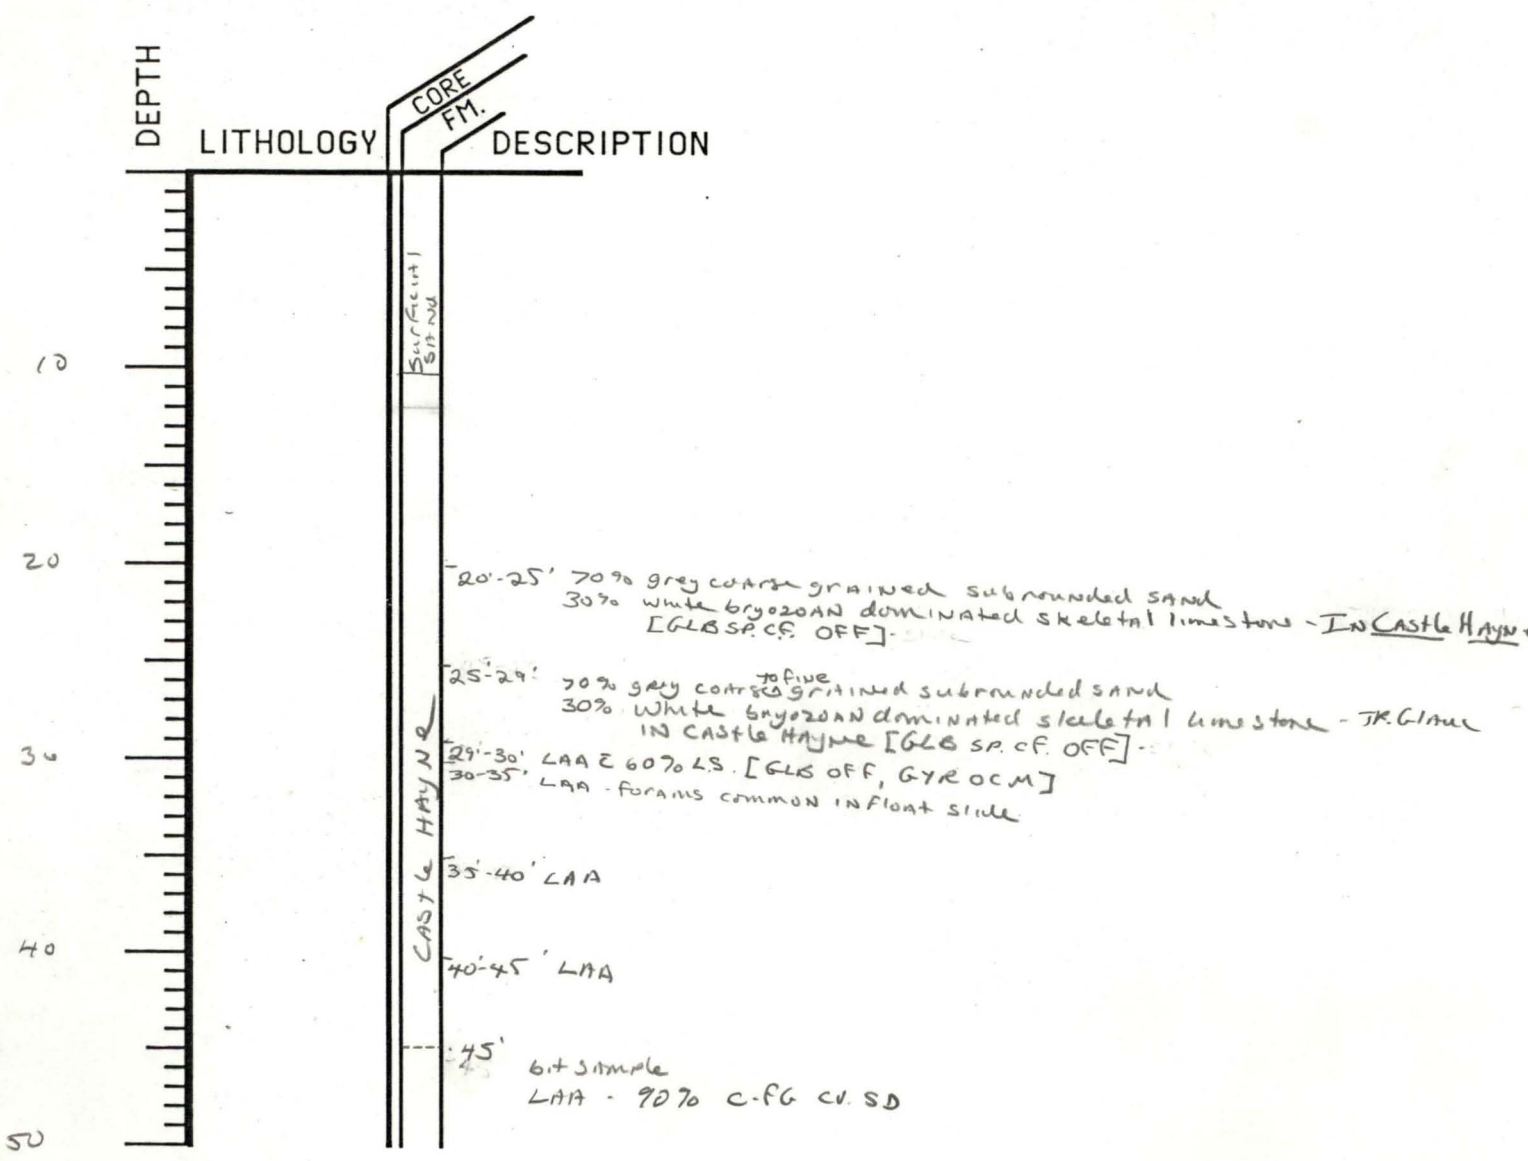 DEPTH
LITHOLOGY
CORE
FM.
DESCRIPTION
Surficial
SAND
10
20
30
40
50
CASTLE HAYNE
20'-25' 70% grey coarse grained subrounded SAND
30% white bryozoAN dominated skeletal limestone - IN CASTLE HAYN
[GLB SP. CF. OFF].
25'-29' 70% grey coarse to fine grained subrounded SAND
30% White bryozoAN dominated skeletal limestone - TR. Glauc
IN CASTLE HAYNE [GLB SP. CF. OFF].
29'-30' LAA c̄ 60% LS. [GLB OFF, GYR OCM]
30-35' LAA - forams common in float slide
35'-40' LAA
40'-45' LAA
45'
bit sample
LAA - 90% C-FG SD